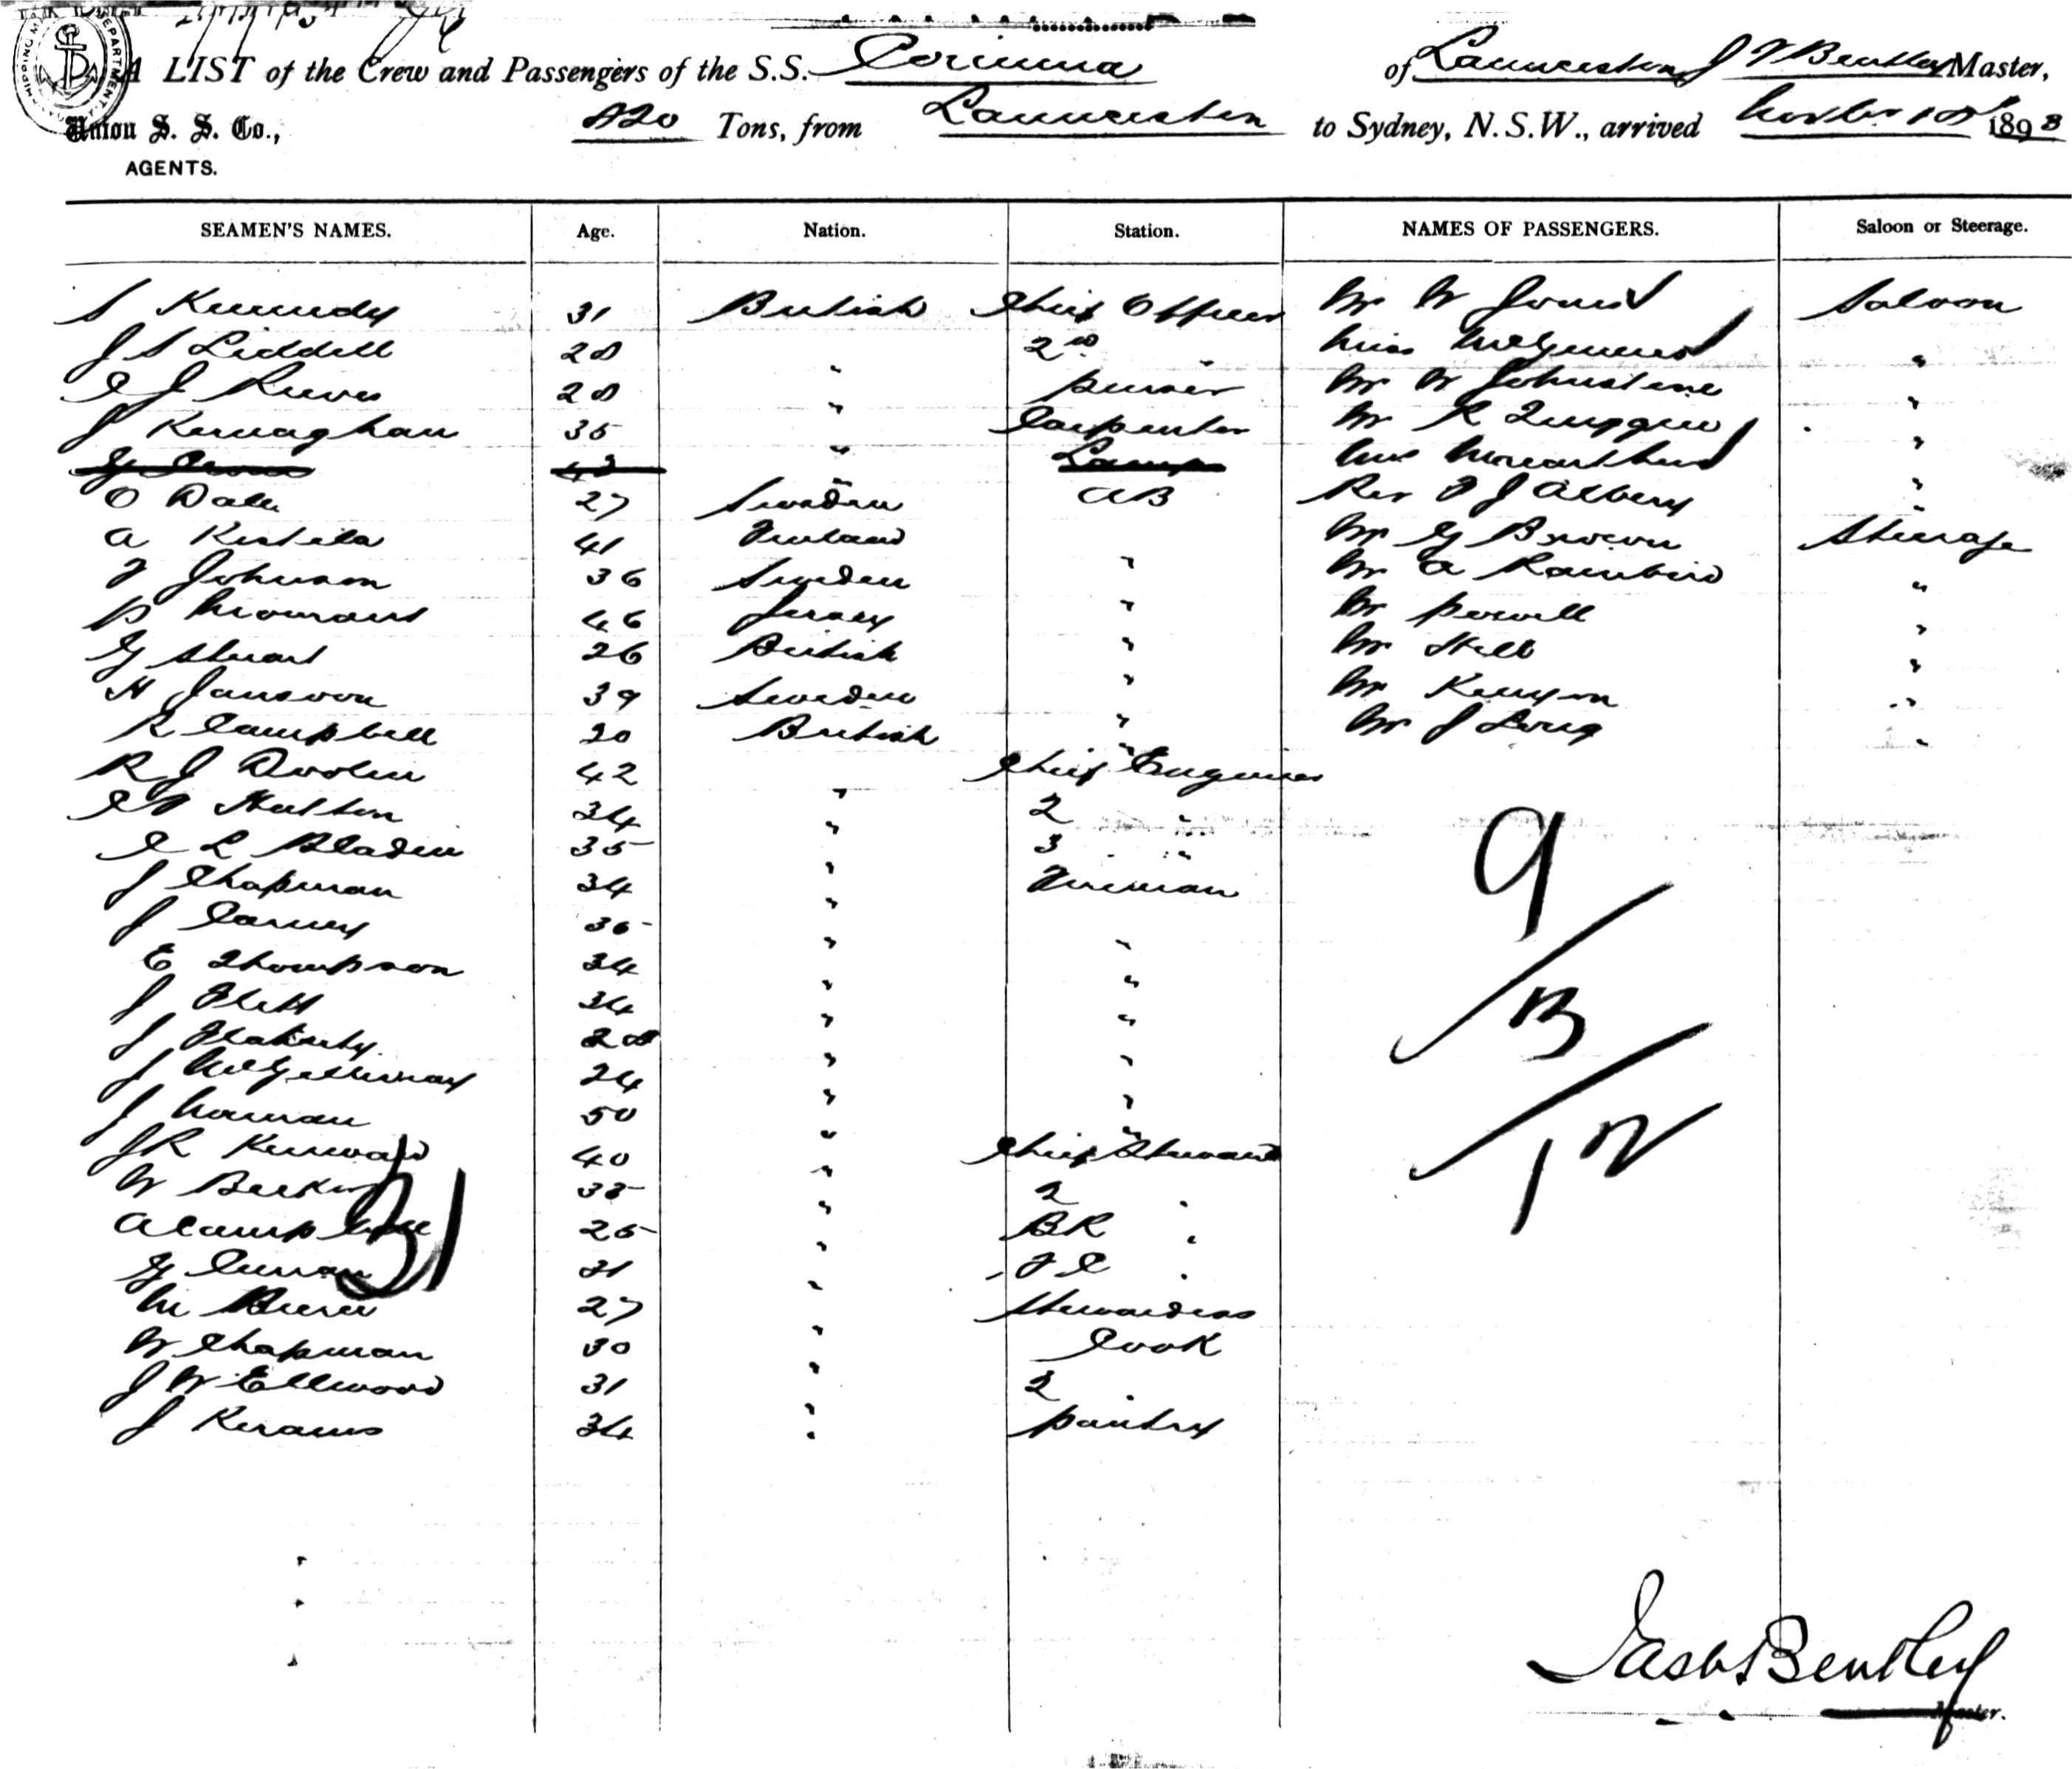 A LIST of the Crew and Passengers of the S.S. Corinna of Launceston J Bentley Master,
Union S. S. Co., 820 Tons, from Launceston to Sydney, N.S.W., arrived 1898
AGENTS.
SEAMEN'S NAMES. Age. Nation. Station. NAMES OF PASSENGERS. Saloon or Steerage.
S Kennedy 31 British Chief Officer Mr W Saloon
J S Liddell 28 " 2nd " Miss "
J Reeves 28 " purser Mr W Johnstone "
J Kernaghan 35 " Carpenter Mr R Quiggin "
Lamp Miss "
O Dale 27 Sweden AB Rev F J Albery "
A 41 Finland " Mr G Brown Steerage
F Johnson 36 Sweden " Mr A Rainbird "
P 46 Jersey " Mr Powell "
G Stuart 26 British " Mr Hill "
H Jansson 39 Sweden " Mr Kenyon "
R Campbell 20 British " Mr J Long "
R J 42 " Chief Engineer
Hutton 34 " 2 "
C L Bladin 35 " 3 "
J Chapman 34 " Fireman
J Carney 35 " "
E Thompson 34 " "
J Flett 34 " "
J Flaherty 28 " "
J McGettigan 24 " "
J 50 " "
J R Kenward 40 " Chief Steward
W 35 " 2 "
A Campbell 25 " BR "
G Curran 21 " F C "
M 27 " Stewardess
W Chapman 30 " Cook
J W Ellwood 31 " 2 "
J 34 " pantry
9
13
12
31
Jas Bentley
Master.